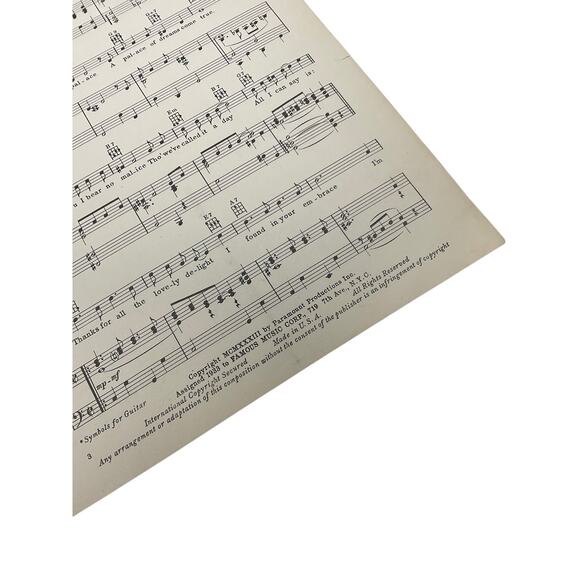 G7
al-ace. A pal-ace of dreams come true.
B7 Em B7 G7
I bear no mal-ice Tho' we've called it a day All I can say is:
E7 A7
Thanks for all the love-ly de-light I found in your em-brace I'm
mp-mf
*Symbols for Guitar
Copyright MCMXXXIII by Paramount Productions Inc.
Assigned 1933 to FAMOUS MUSIC CORP., 719 7th Ave., N.Y.C.
International Copyright Secured Made in U.S.A. All Rights Reserved
3 Any arrangement or adaptation of this composition without the consent of the publisher is an infringement of copyright